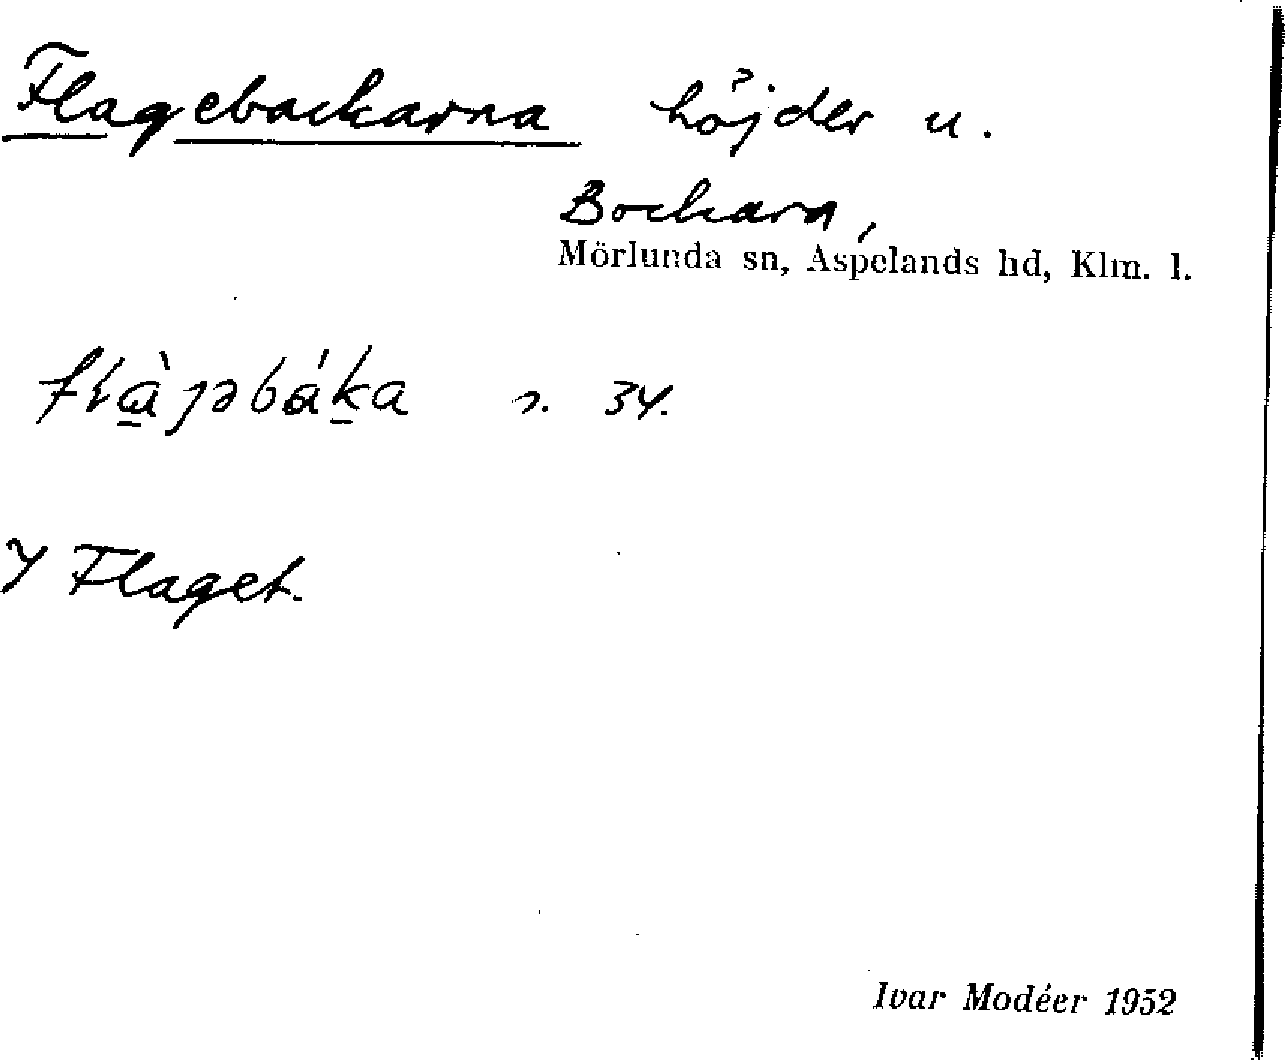 Flagebackarna höjder u.
Bockara,
Mörlunda sn, Aspelands hd, Klm. l.
s. 34.
Y Flaget.
Ivar Modéer 1952